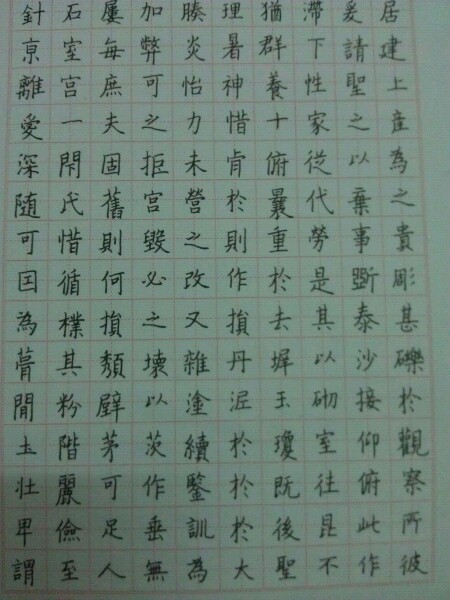 針石屢加腠理猶滯爰居
京室每弊炎暑群下請建
離宮庶可怡神養性聖上
愛一夫之力惜十家之産
深閇固拒未肯俯從以為
随氏舊宮營於曩代棄之
可惜則毀之則重勞事貴
因循何必改作於是斲彫
為樸損之又損去其泰甚
葺其頹壞雜丹墀以沙礫
閒粉壁以塗泥玉砌接於
土階茅茨續於瓊室仰觀
壯麗可作鑒於既往俯察
卑儉足垂訓於後昆此所
謂至人無為大聖不作彼